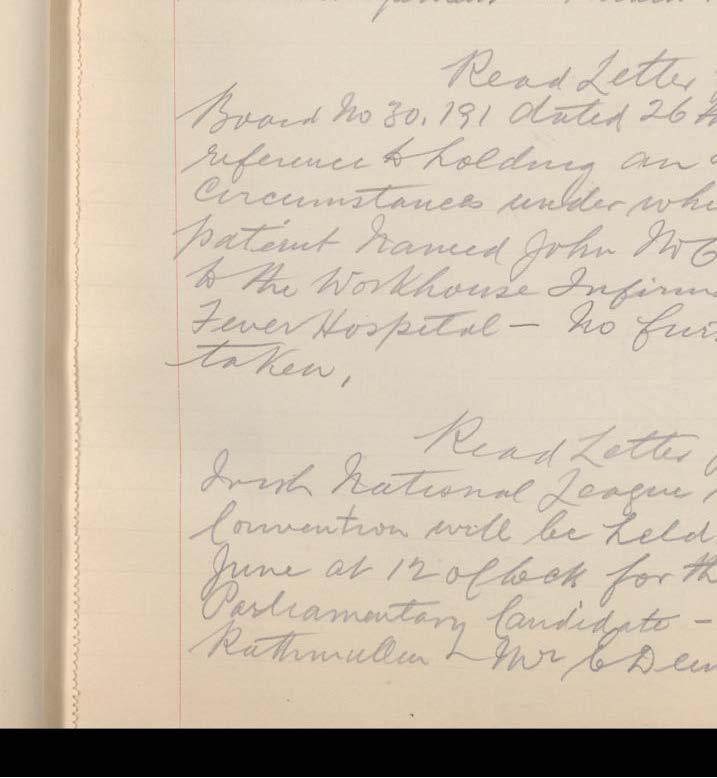 Read Letter
Board No 30,191 dated 26
reference to holding an
Circumstances under
patient named John
to the Workhouse
Fever Hospital — No
taken,
Read Letter
Irish National League
Convention will be held
June at 12 oClock for
Parliamentary Candidate —
Rathmullen - Mr